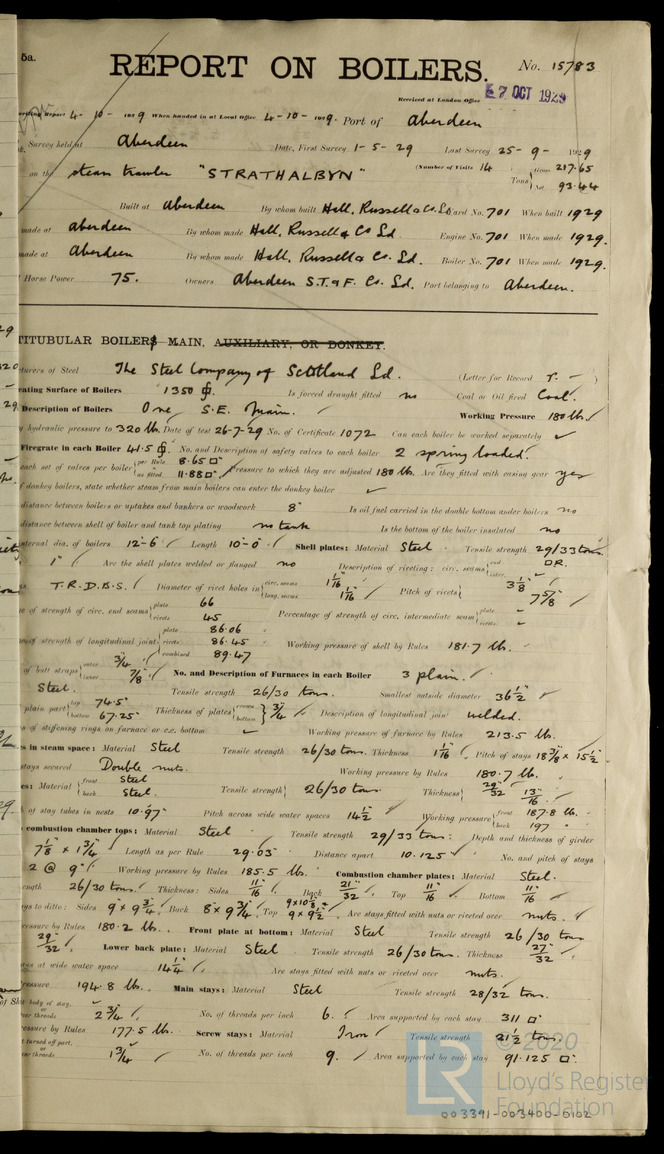 5a.
REPORT ON BOILERS.
No. 15783
Received at London Office
7 OCT 1929
Report 4-10-1929 When handed in at Local Office 4-10-1929. Port of Aberdeen
Survey held at Aberdeen Date, First Survey 1-5-29 Last Survey 25-9-1929
on the steam trawler "STRATHALBYN" (Number of Visits 14 Tons Gross 217.65 Net 93.44
Built at Aberdeen By whom built Hall, Russell & Co. Ld. Yard No. 701 When built 1929
made at Aberdeen By whom made Hall, Russell & Co Ld. Engine No. 701 When made 1929.
made at Aberdeen By whom made Hall, Russell & Co. Ld. Boiler No. 701 When made 1929.
Horse Power 75. Owners Aberdeen S.T. & F. Co. Ld. Port belonging to Aberdeen.
TITUBULAR BOILERS MAIN, AUXILIARY, OR DONKEY.
turers of Steel The Steel Company of Scotland Ld. (Letter for Record r.)
eating Surface of Boilers 1350 Is forced draught fitted no Coal or Oil fired Coal.
Description of Boilers One S.E. Main. Working Pressure 180 lb.
y hydraulic pressure to 320 lb. Date of test 26-7-29 No. of Certificate 1072 Can each boiler be worked separately ✓
Firegrate in each Boiler 41.5 No. and Description of safety valves to each boiler 2 spring loaded.
each set of valves per boiler per Rule 8.65 □" as fitted 11.88 □" Pressure to which they are adjusted 180 lb. Are they fitted with easing gear yes
f donkey boilers, state whether steam from main boilers can enter the donkey boiler ✓
distance between boilers or uptakes and bunkers or woodwork 8" Is oil fuel carried in the double bottom under boilers no
distance between shell of boiler and tank top plating no tank Is the bottom of the boiler insulated no
ternal dia. of boilers 12'-6" Length 10'-0" Shell plates: Material Steel Tensile strength 29/33 tons
1" Are the shell plates welded or flanged no Description of riveting: circ. seams end D.R. inter. ✓
T.R.D.B.S. Diameter of rivet holes in circ. seams 1 1/16" long. seams 1 1/16" Pitch of rivets 3 1/8" 7 5/8"
e of strength of circ. end seams plate 66 rivets 45 Percentage of strength of circ. intermediate seam plate rivets
of strength of longitudinal joint plate 86.06 rivets 86.45 combined 89.47 Working pressure of shell by Rules 181.7 lb.
of butt straps outer 3/4" inner 7/8" No. and Description of Furnaces in each Boiler 3 plain.
Steel. Tensile strength 26/30 tons. Smallest outside diameter 36 1/2"
plain part top 74.5" bottom 67.25" Thickness of plates crown bottom 3/4" Description of longitudinal joint welded.
s of stiffening rings on furnace or c.c. bottom ✓ Working pressure of furnace by Rules 213.5 lb.
s in steam space: Material Steel Tensile strength 26/30 tons. Thickness 1 1/16" Pitch of stays 18 3/8" x 15 1/2"
stays secured Double nuts. Working pressure by Rules 180.7 lb.
es: Material front Steel back Steel. Tensile strength 26/30 tons Thickness 29/32" 13/16"
h of stay tubes in nests 10.97" Pitch across wide water spaces 14 1/2" Working pressure front 187.8 lb. back 197 "
combustion chamber tops: Material Steel Tensile strength 29/33 tons. Depth and thickness of girder
7 1/8" x 1 3/4" Length as per Rule 29.03" Distance apart 10.125" No. and pitch of stays
2 @ 9" Working pressure by Rules 185.5 lb. Combustion chamber plates: Material Steel.
ength 26/30 tons. Thickness: Sides 11/16" Back 21/32" Top 11/16" Bottom 11/16"
ys to ditto: Sides 9" x 9 3/4" Back 8" x 9 3/4" Top 9 x 10 1/8" + 9 x 9 1/2" Are stays fitted with nuts or riveted over nuts.
ressure by Rules 180.2 lb. Front plate at bottom: Material Steel Tensile strength 26/30 tons
29/32" Lower back plate: Material Steel Tensile strength 26/30 tons. Thickness 27/32"
s at wide water space 14 1/4" Are stays fitted with nuts or riveted over nuts.
ressure 194.8 lb. Main stays: Material Steel Tensile strength 28/32 tons.
body of stay, or over threads 2 3/4" No. of threads per inch 6. Area supported by each stay 311 □"
ressure by Rules 177.5 lb. Screw stays: Material Iron Tensile strength 21 1/2 tons.
t turned off part, or over threads 1 3/4" No. of threads per inch 9. Area supported by each stay 91.125 □"
LR © 2020
Lloyd's Register
Foundation
003391-003400-0102